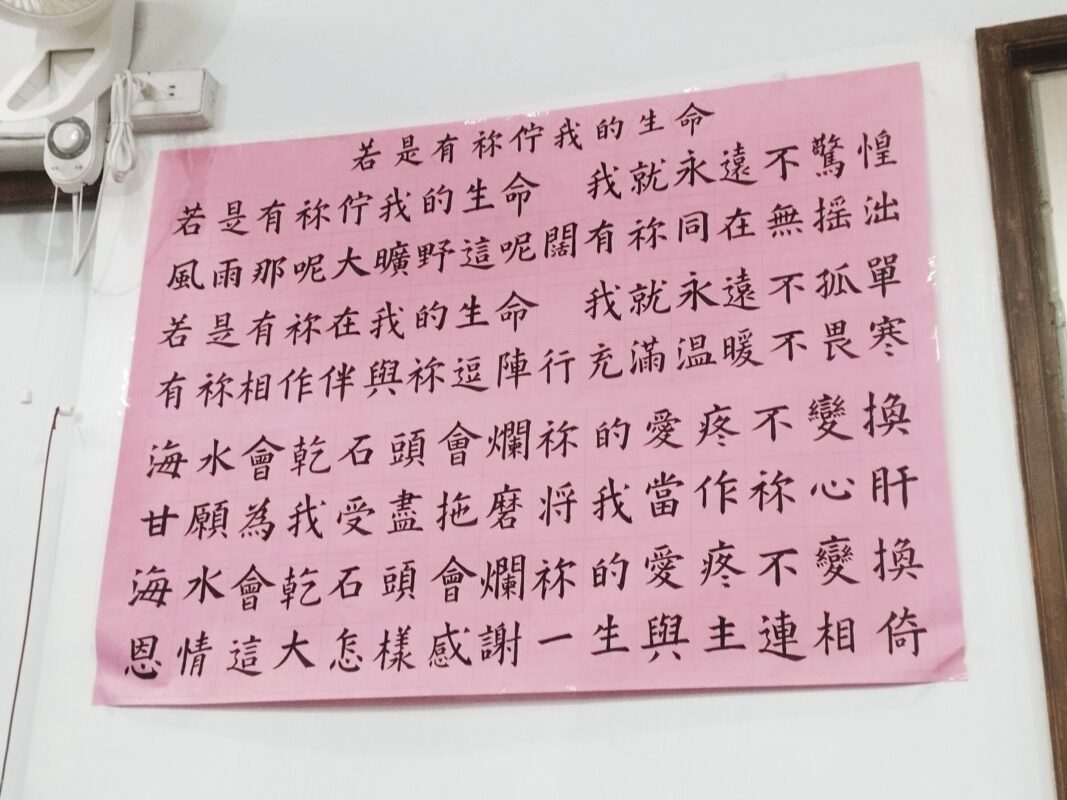 若是有祢佇我的生命
若是有祢佇我的生命 我就永遠不驚惶
風雨那呢大曠野這呢闊有祢同在無搖泏
若是有祢在我的生命 我就永遠不孤單
有祢相作伴與祢逗陣行充滿溫暖不畏寒
海水會乾石頭會爛祢的愛疼不變換
甘願為我受盡拖磨將我當作祢心肝
海水會乾石頭會爛祢的愛疼不變換
恩情這大怎樣感謝一生與主連相倚